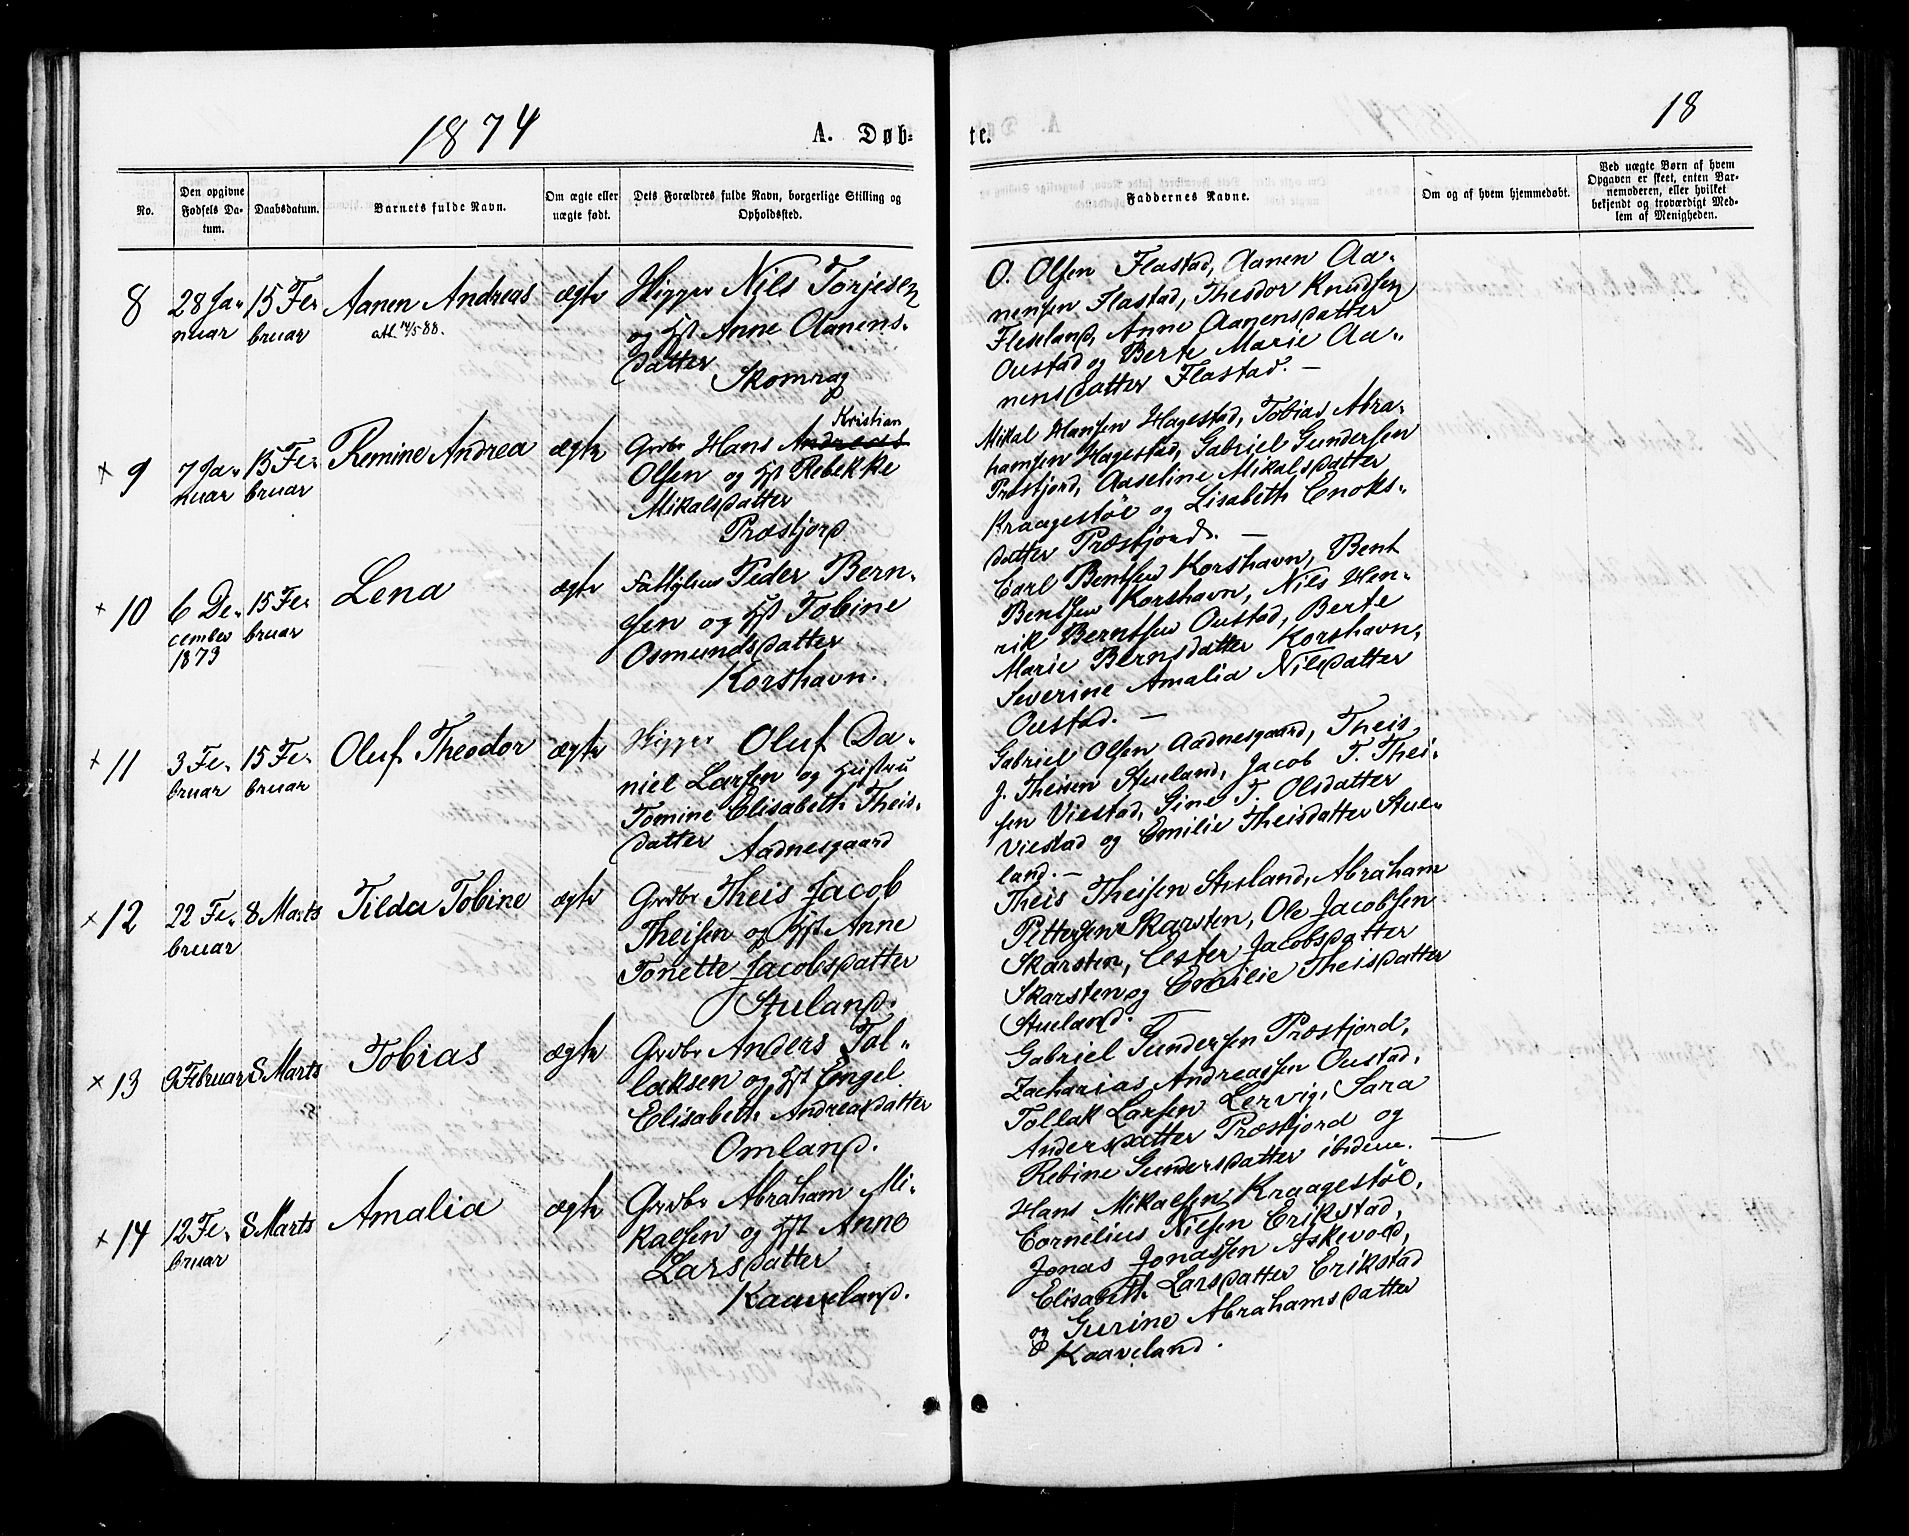 1874
A. Døb=
te.
18
No.
Den opgivne Fødsels Da-
tum.
Daabsdatum.
Barnets fulde Navn.
Om ægte eller
uægte født.
Dets Forældres fulde Navn, borgerlige Stilling og
Opholdssted.
Faddernes Navne.
Om og af hvem hjemmedøbt.
Ved uægte Børn af hvem
Opgaven er skeet, enten Bar-
nemoderen, eller hvilket
bekjendt og troværdigt Med-
lem af Menigheden.
8
28 Ja-
nuar
15 Fe-
bruar
Aanen Andreas
att. 14/5-88.
ægte
Nils Torjesen
og Hst Anne Aanens-
datter
Skomrag
O. Olsen Flastad, Aanen Aa-
nensen Flastad, Theodor Knudsen
Fleseland, Anne Aanensdatter
Oustad og Berte Marie Aa-
nensdatter Flastad. —
× 9
7 Ja-
nuar
15 Fe-
bruar
Remine Andrea
ægte
Kristian
Grdbr Hans Andreas
Olsen og Hst Rebekke
Mikalsdatter
Præstjord
Mikal Hansen Hagestad, Tobias Abra-
hamsen Hagestad, Gabriel Gundersen
Præstjord, Aaseline Mikalsdatter
Kraagestøl og Lisabeth Enoks-
datter Præstjord. —
× 10
6 De-
cember
1873
15 Fe-
bruar
Lena
ægte
Peder Bern-
sen og Hst Tobine
Osmundsdatter
Korshavn.
Carl Bentsen Korshavn, Bent
Bentsen Korshavn, Nils Hen-
rik Berntsen Oustad, Berte
Marie Bernsdatter Korshavn,
Severine Amalia Nilsdatter
Oustad. —
× 11
3 Fe-
bruar
15 Fe-
bruar
Oluf Theodor
ægte
Oluf Da-
niel Larsen og Hustru
Tomine Elisabeth Theis-
datter Aadnesgaard
Gabriel Olsen Aadnesgaard, Theis
J. Theisen Stueland, Jacob T. Thei-
sen Viestad, Sine T. Olsdatter
Viestad og Emilie Theisdatter Stue-
land. —
× 12
22 Fe-
bruar
8 Marts
Tilda Tobine
ægte
Grdbr Theis Jacob
Theisen og Hst Anne
Tonette Jacobsdatter
Stueland.
Theis Theisen Stueland, Abraham
Pettersen Skarsten, Ole Jacobsen
Skarsten, Ester Jacobsdatter
Skarsten og Emilie Theisdatter
Stueland. —
× 13
9 Februar
8 Marts
Tobias
ægte
Grdbr Anders Tol-
laksen og Hst Engel
Elisabeth Andreasdatter
Omland.
Gabriel Gundersen Præstjord,
Zacharias Andreassen Oustad,
Tollak Larsen Lervig, Sara
Andersdatter Præstjord og
Rebine Gundersdatter ibidem. —
× 14
12 Fe-
bruar
8 Marts
Amalia
ægte
Grdbr Abraham Mi-
kalsen og Hst Anne
Larsdatter
Kaaveland.
Hans Mikalsen Kraagestøl,
Cornelius Nilsen Erikstad,
Jonas Jonassen Askevold,
Elisabeth Larsdatter Erikstad
og Gurine Abrahamsdatter
Kaaveland.